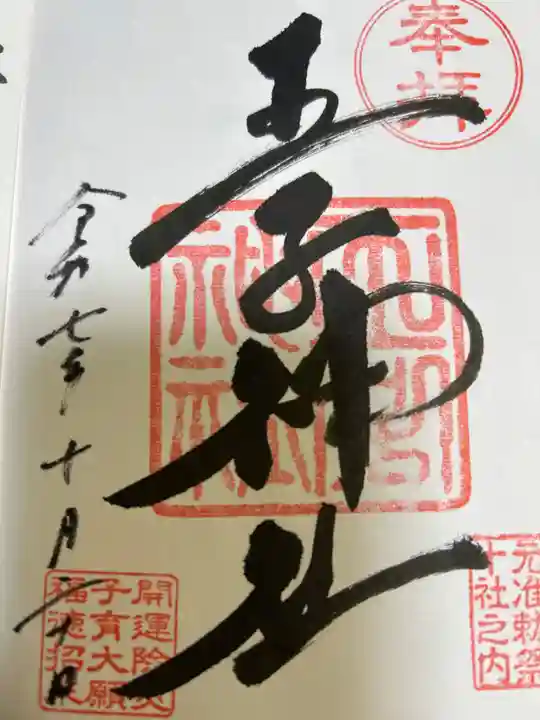 奉拝
王子神社
令和七年十月二十日
元准勅祭
十社之内
開運除災
子育大願
福徳招来